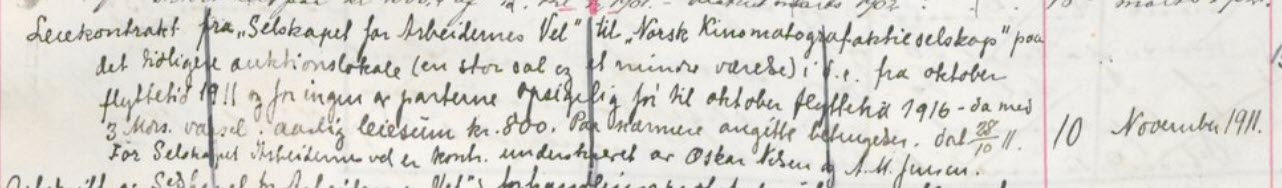 Leiekontrakt fra "Selskapet for Arbeidernes Vel" til "Norsk Kinomatografaktieselskap" paa
det tidligere auktionslokale (en stor sal og et mindre værelse) i 1.e. fra oktober
flyttetid 1911 og for ingen av parterne opsigelig før til oktober flyttetid 1916 - da med
3 Mdrs. varsel. aarlig leiesum kr. 800. Paa nærmere angitte betingelser. dat 28/10 11.
10 November 1911.
For Selskapet Arbeidernes vel er kontr. underskrevet av Oskar Nilsen og A.M. Jensen.